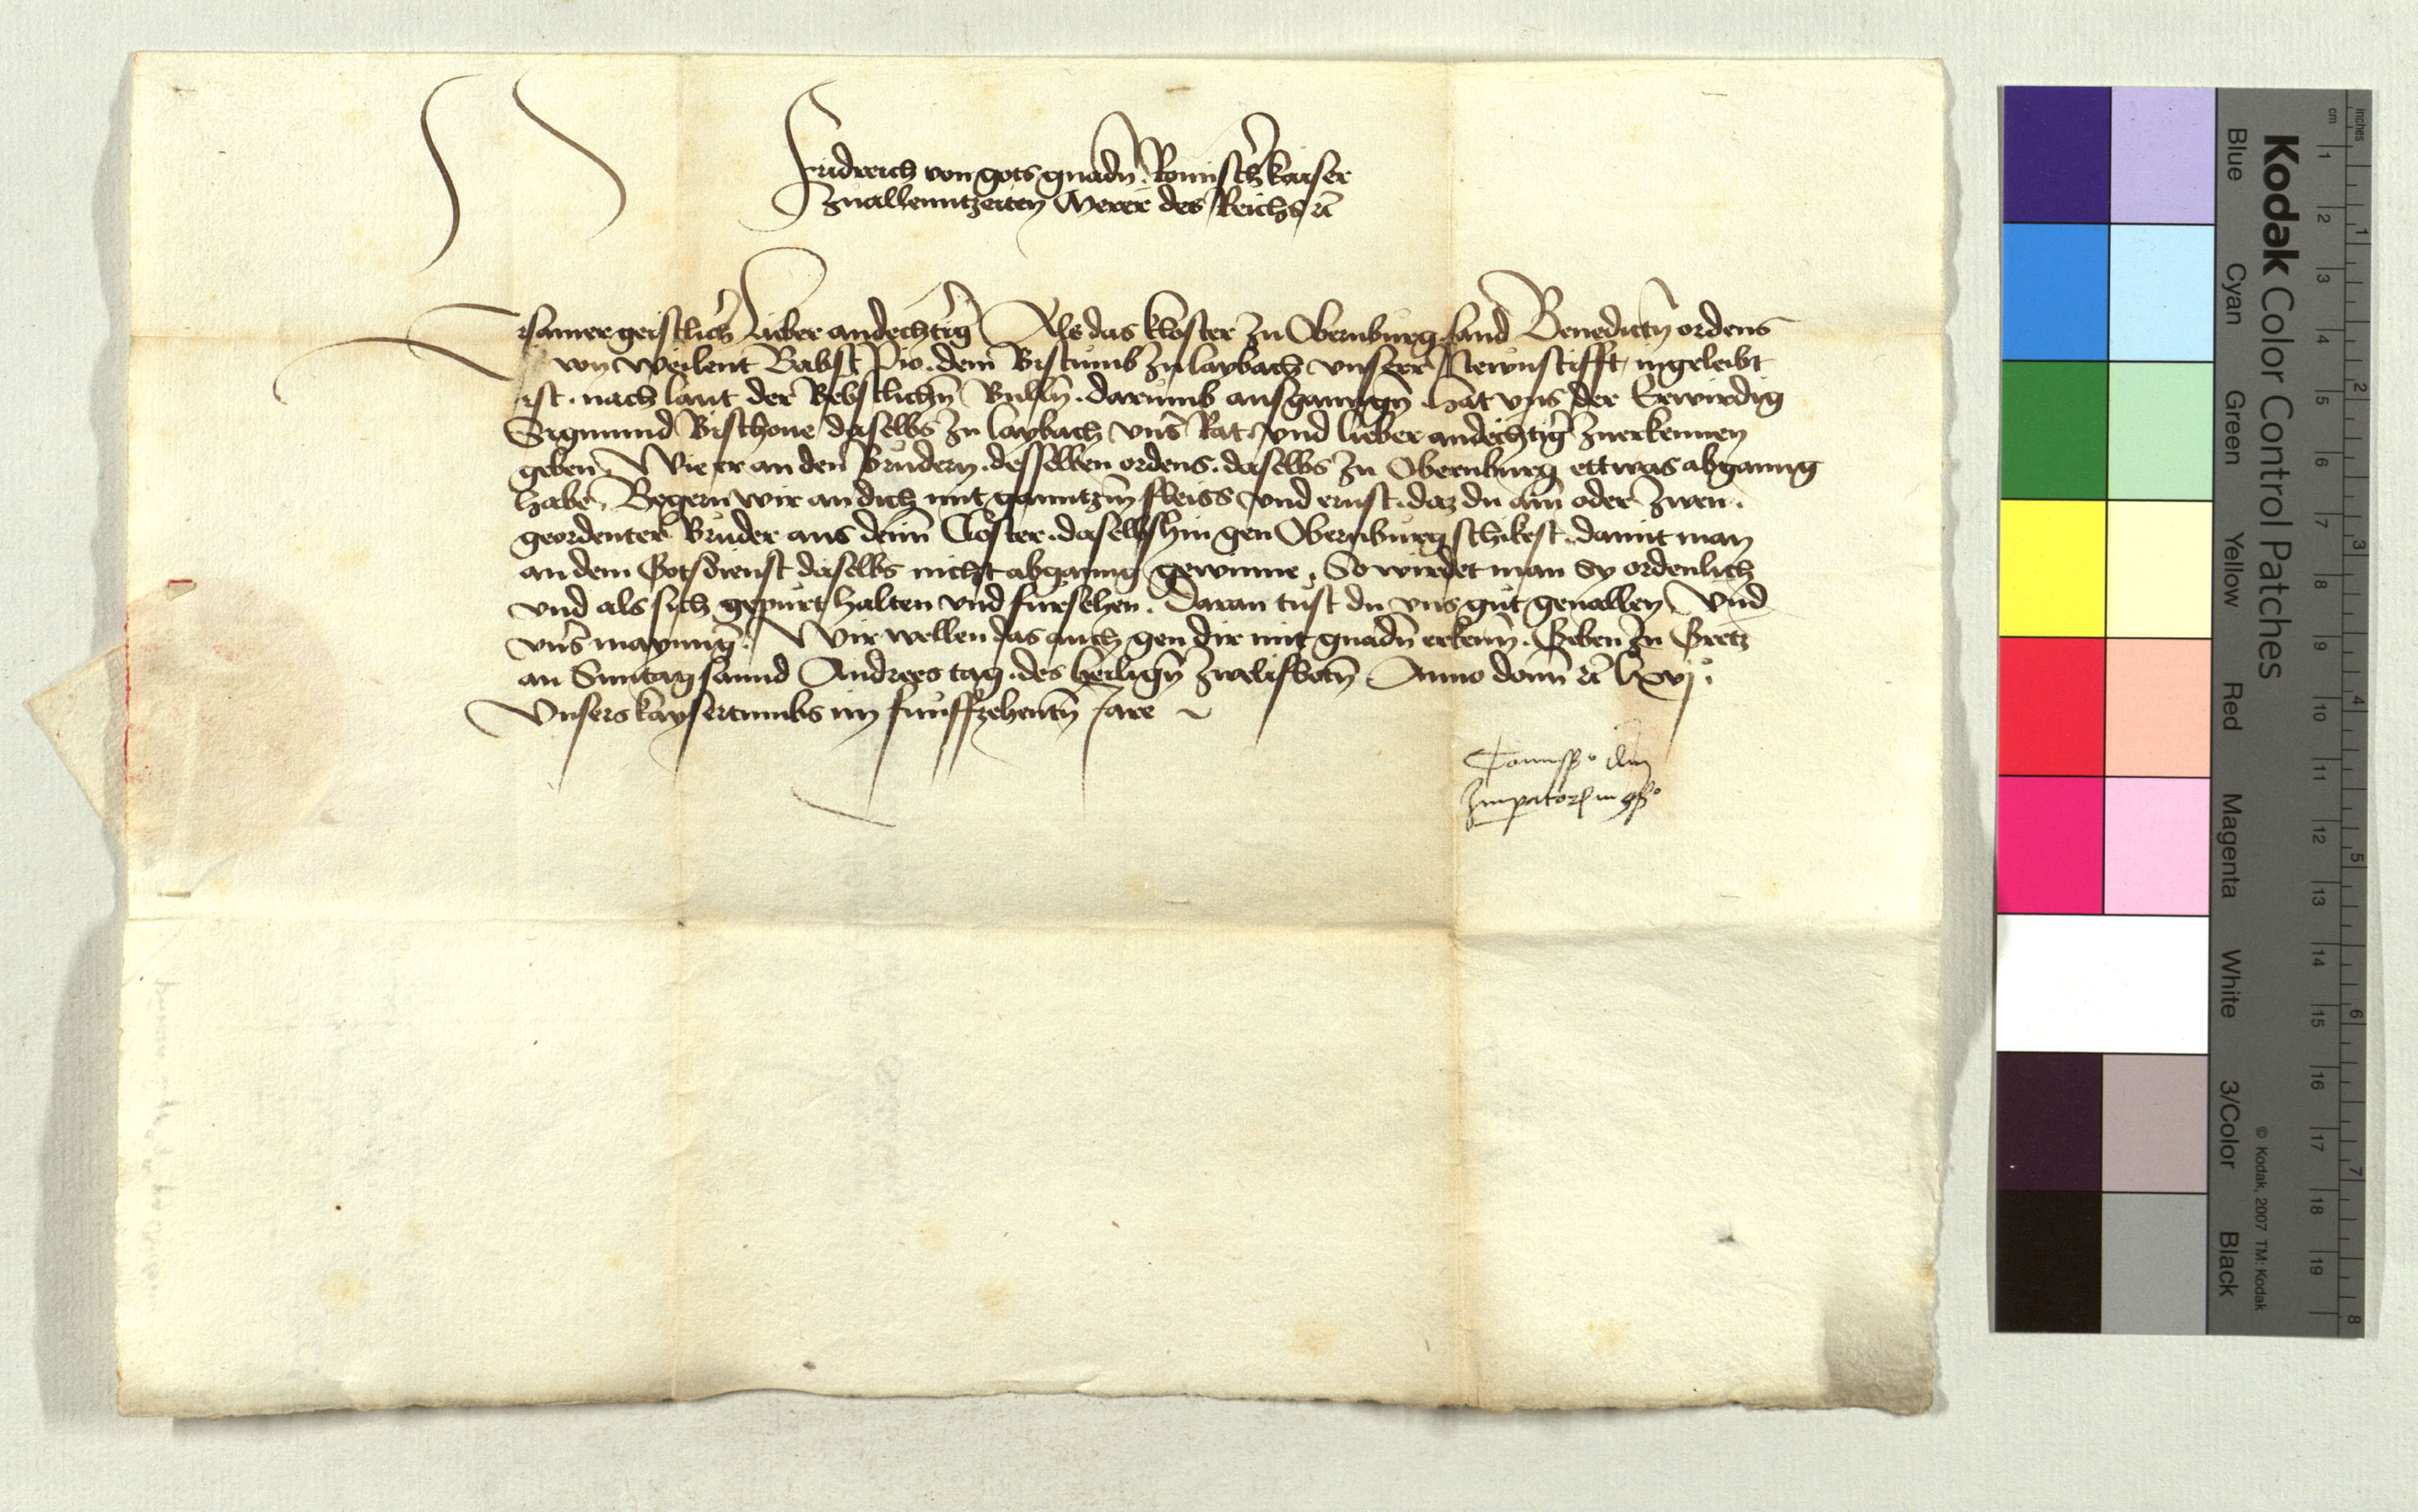 Fridreich von gots gnadn̄ Romischer kaiser
zuallenntzeiten Merer des Reichs ꝛc̄
Ersamer geistlicher lieber andechtiger Als das kloster zu Obernburg sand Benedictn̄ ordens
von weilent Babst Pio. dem Bistumb zu laybach vnserr Newnstifft, ingeleibt
ist. nach laut der Bebstlichn̄ Bulln̄. darumb ausganngn̄ hat vns der Erwirdig
Sigmund Bischoue daselbs zu laybach vns̄ Rat vnd lieber andechtiger zuerkennen
geben Wie er an den Brudern. desselben ordens. daselbs zu Obernburg ettwas abganng
habe, Begern wir an dich mit ganntzm̄ fleiss vnd ernst. daz du ain oder zwen.
geordenter Bruder aus deim̄ Closter. daselbshin gen Obernburg schikest. damit man
an dem Gotsdienst daselbs nicht abganng gewinne, So wirdet man Sy ordenlich
vnd als sich gepurt halten vnd fursehen. Daran tust du vns gut geuallen Vnd
vns̄ maynung. Wir wellen das auch gen dir mit gnadn̄ erkenn̄. Geben zu Gretz
an Sunntag sannd Andrees tag. des heilign̄ zwelifbotn̄ Anno domī ꝛc̄ lxvj°.
Vnsers kaysertumbs im funffzehentn̄ Jare
Comissio dni
Imperatoris in 9s°
Kodak Color Control Patches
Blue Cyan Green Yellow Red Magenta White 3/Color Black
© Kodak, 2007 TM: Kodak
inches 1 2 3 4 5 6 7 8
cm 1 2 3 4 5 6 7 8 9 10 11 12 13 14 15 16 17 18 19